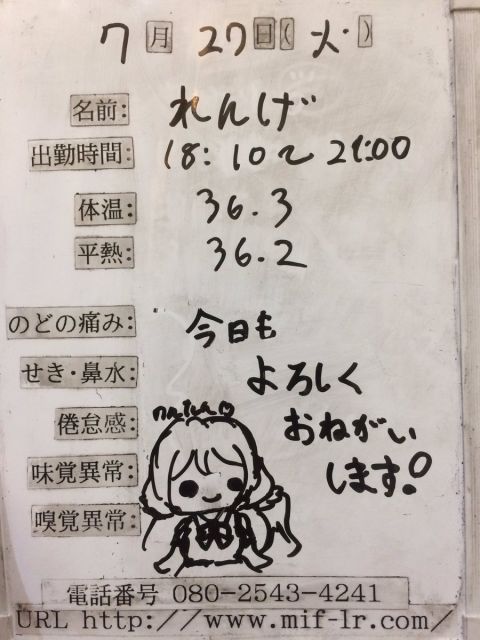 7月27日(火)
名前: れんげ
出勤時間: 18:10〜21:00
体温: 36.3
平熱: 36.2
のどの痛み:
今日も
せき・鼻水:
よろしく
倦怠感:
おねがい
味覚異常:
します!
嗅覚異常:
電話番号 080-2543-4241
URL http://www.mif-lr.com/